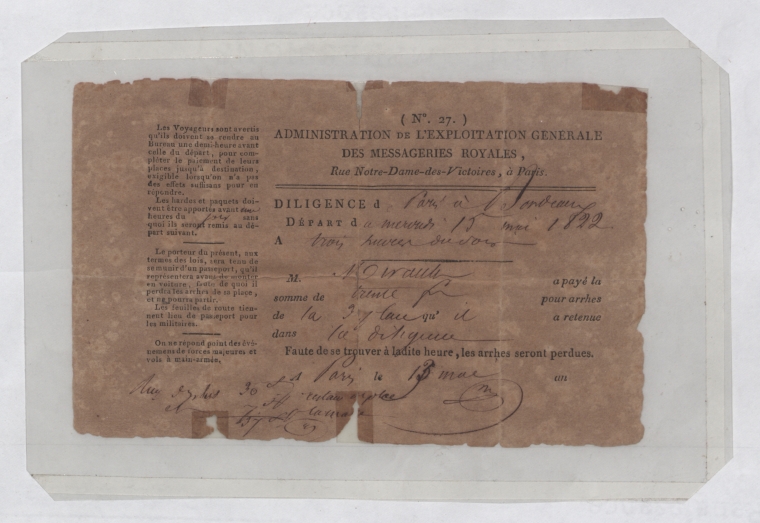 Les Voyageurs sont avertis
qu'ils doivent se rendre au
Bureau une demi-heure avant
celle du départ, pour com-
pléter le paiement de leurs
places jusqu'à destination,
exigible lorsqu'on n'a pas
des effets suffisans pour en
répondre.
Les hardes et paquets doi-
vent être apportés avant
heures du sans
quoi ils seront remis au dé-
part suivant.
Le porteur du présent, aux
termes des lois, sera tenu de
se munir d'un passeport, qu'il
représentera avant de monter
en voiture; faute de quoi il
perdra les arrhes de sa place,
et ne pourra partir.
Les feuilles de route tien-
nent lieu de passeport pour
les militaires.
On ne répond pui des évé-
nemens de forces majeures et
vols à main-armée.
( N°. 27. )
ADMINISTRATION DE L'EXPLOITATION GÉNÉRALE
DES MESSAGERIES ROYALES,
Rue Notre-Dame-des-Victoires, à Paris.
DILIGENCE d Paris à Bordeaux
DÉPART d mercredi 15 mai 1822
A trois heures du soir
M. a payé la
somme de trente fr pour arrhes
de la place qu'il a retenue
dans
Faute de se trouver à ladite heure, les arrhes seront perdues.
Paris le 13 mai an
30